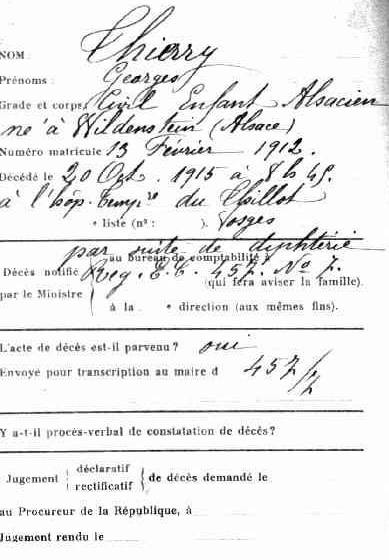 NOM Thierry
Prénoms : Georges
Grade et corps Civil Enfant Alsacien
né à Wildenstein (Alsace)
Numéro matricule 13 Février 1912.
Décédé le 20 Oct. 1915 à 8h 45.
à l'hôp. Tempre du Thillot
• liste (nº : ). Vosges
par suite de diphtérie
au bureau de comptabilité à
Décès notifié Reg. E. C. 457. No 7.
(qui fera aviser la famille).
par le Ministre
à la • direction (aux mêmes fins).
L'acte de décès est-il parvenu ? oui
Envoyé pour transcription au maire d 457/7
Y a-t-il procès-verbal de constatation de décès?
Jugement { déclaratif
rectificatif } de décès demandé le
au Procureur de la République, à
Jugement rendu le